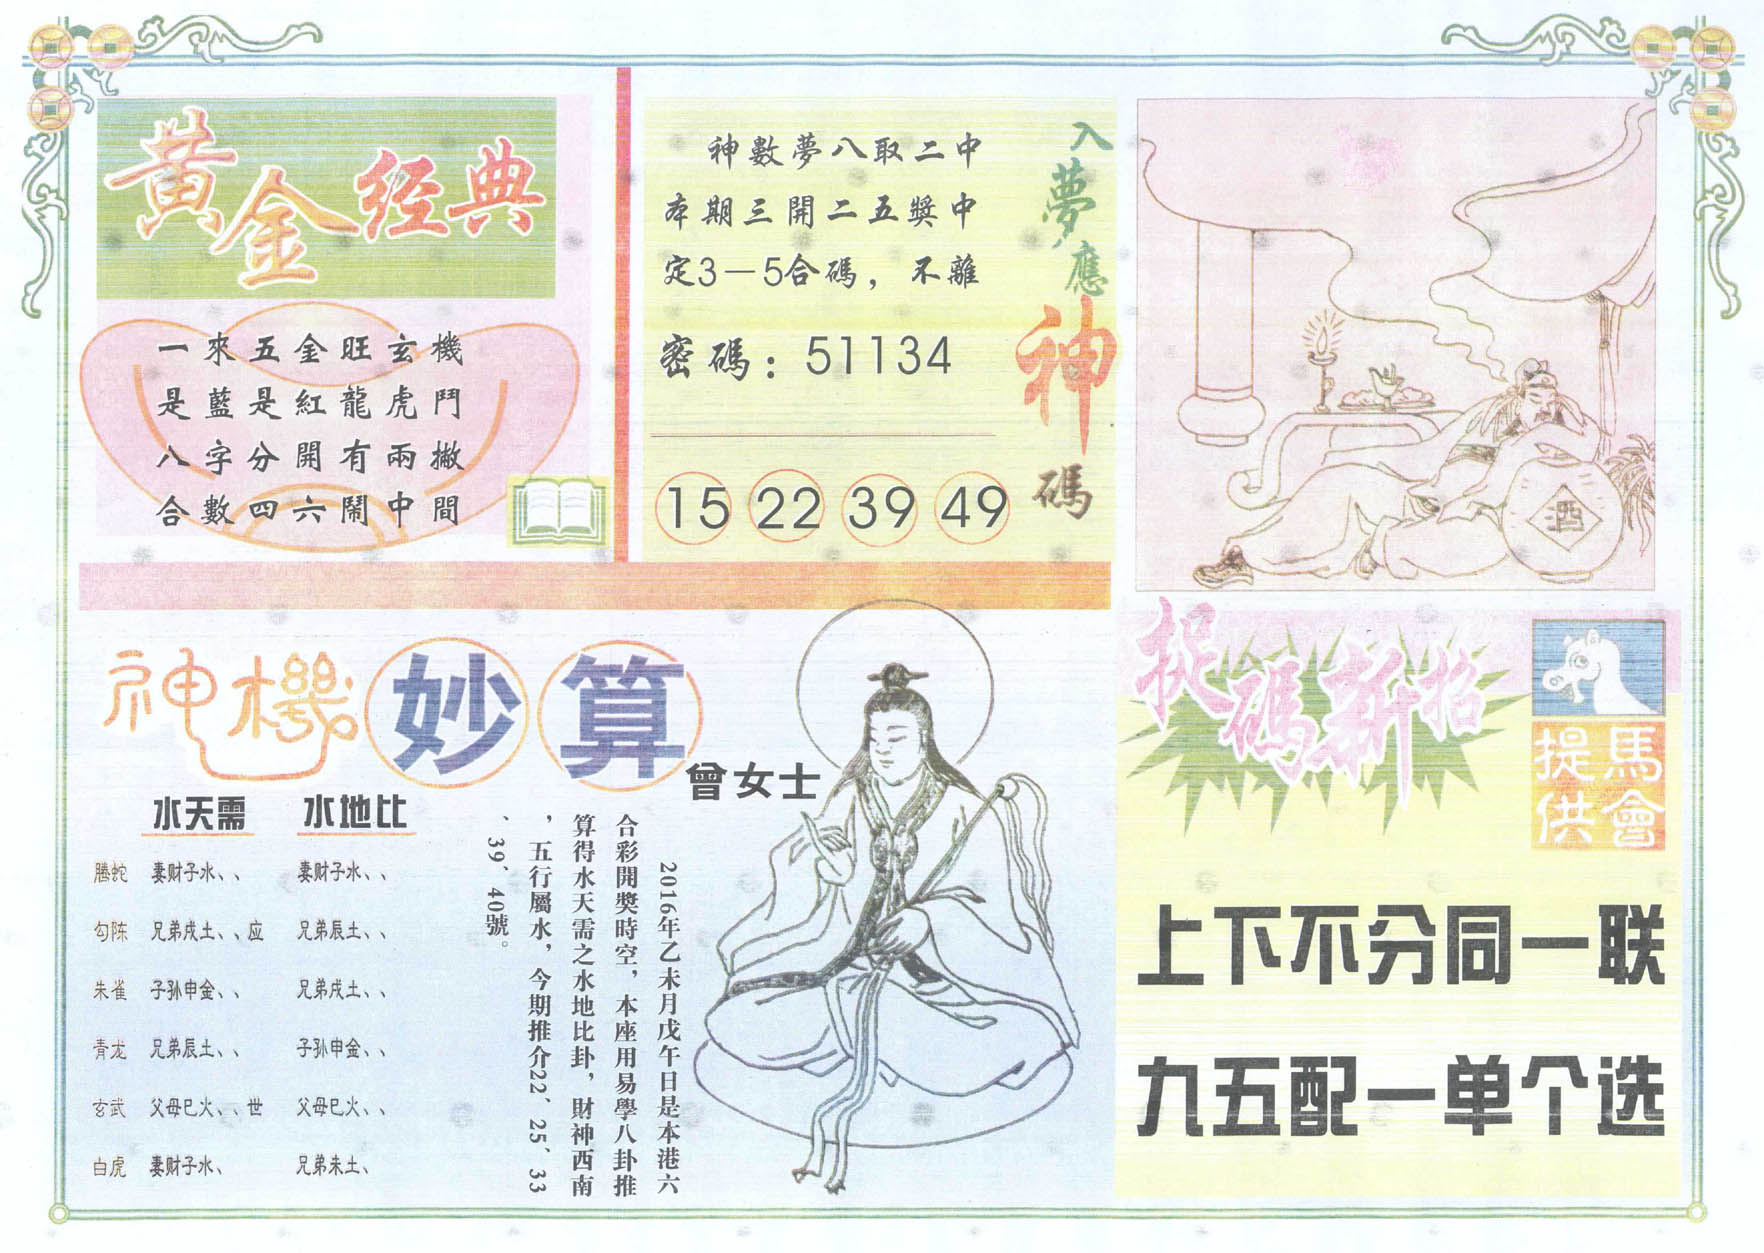 黃金经典
一來五金旺玄機
是藍是紅龍虎鬥
八字分開有兩撇
合數四六鬧中間
神數夢八取二中
本期三開二五獎中
定3—5合碼，不離
密碼：51134
15 22 39 49
入夢應神碼
酒
神機妙算
曾女士
水天需 水地比
騰蛇 妻财子水、、 妻财子水、、
勾陈 兄弟戌土、、应 兄弟辰土、、
朱雀 子孙申金、、 兄弟戌土、、
青龙 兄弟辰土、、 子孙申金、、
玄武 父母巳火、、世 父母巳火、、
白虎 妻财子水、 兄弟未土、
2016年乙未月戊午日是本港六
合彩開獎時空，本座用易學八卦推
算得水天需之水地比卦，財神西南
，五行屬水，今期推介22、25、33
、39、40號。
捉碼新招
馬會提供
上下不分同一联
九五配一单个选